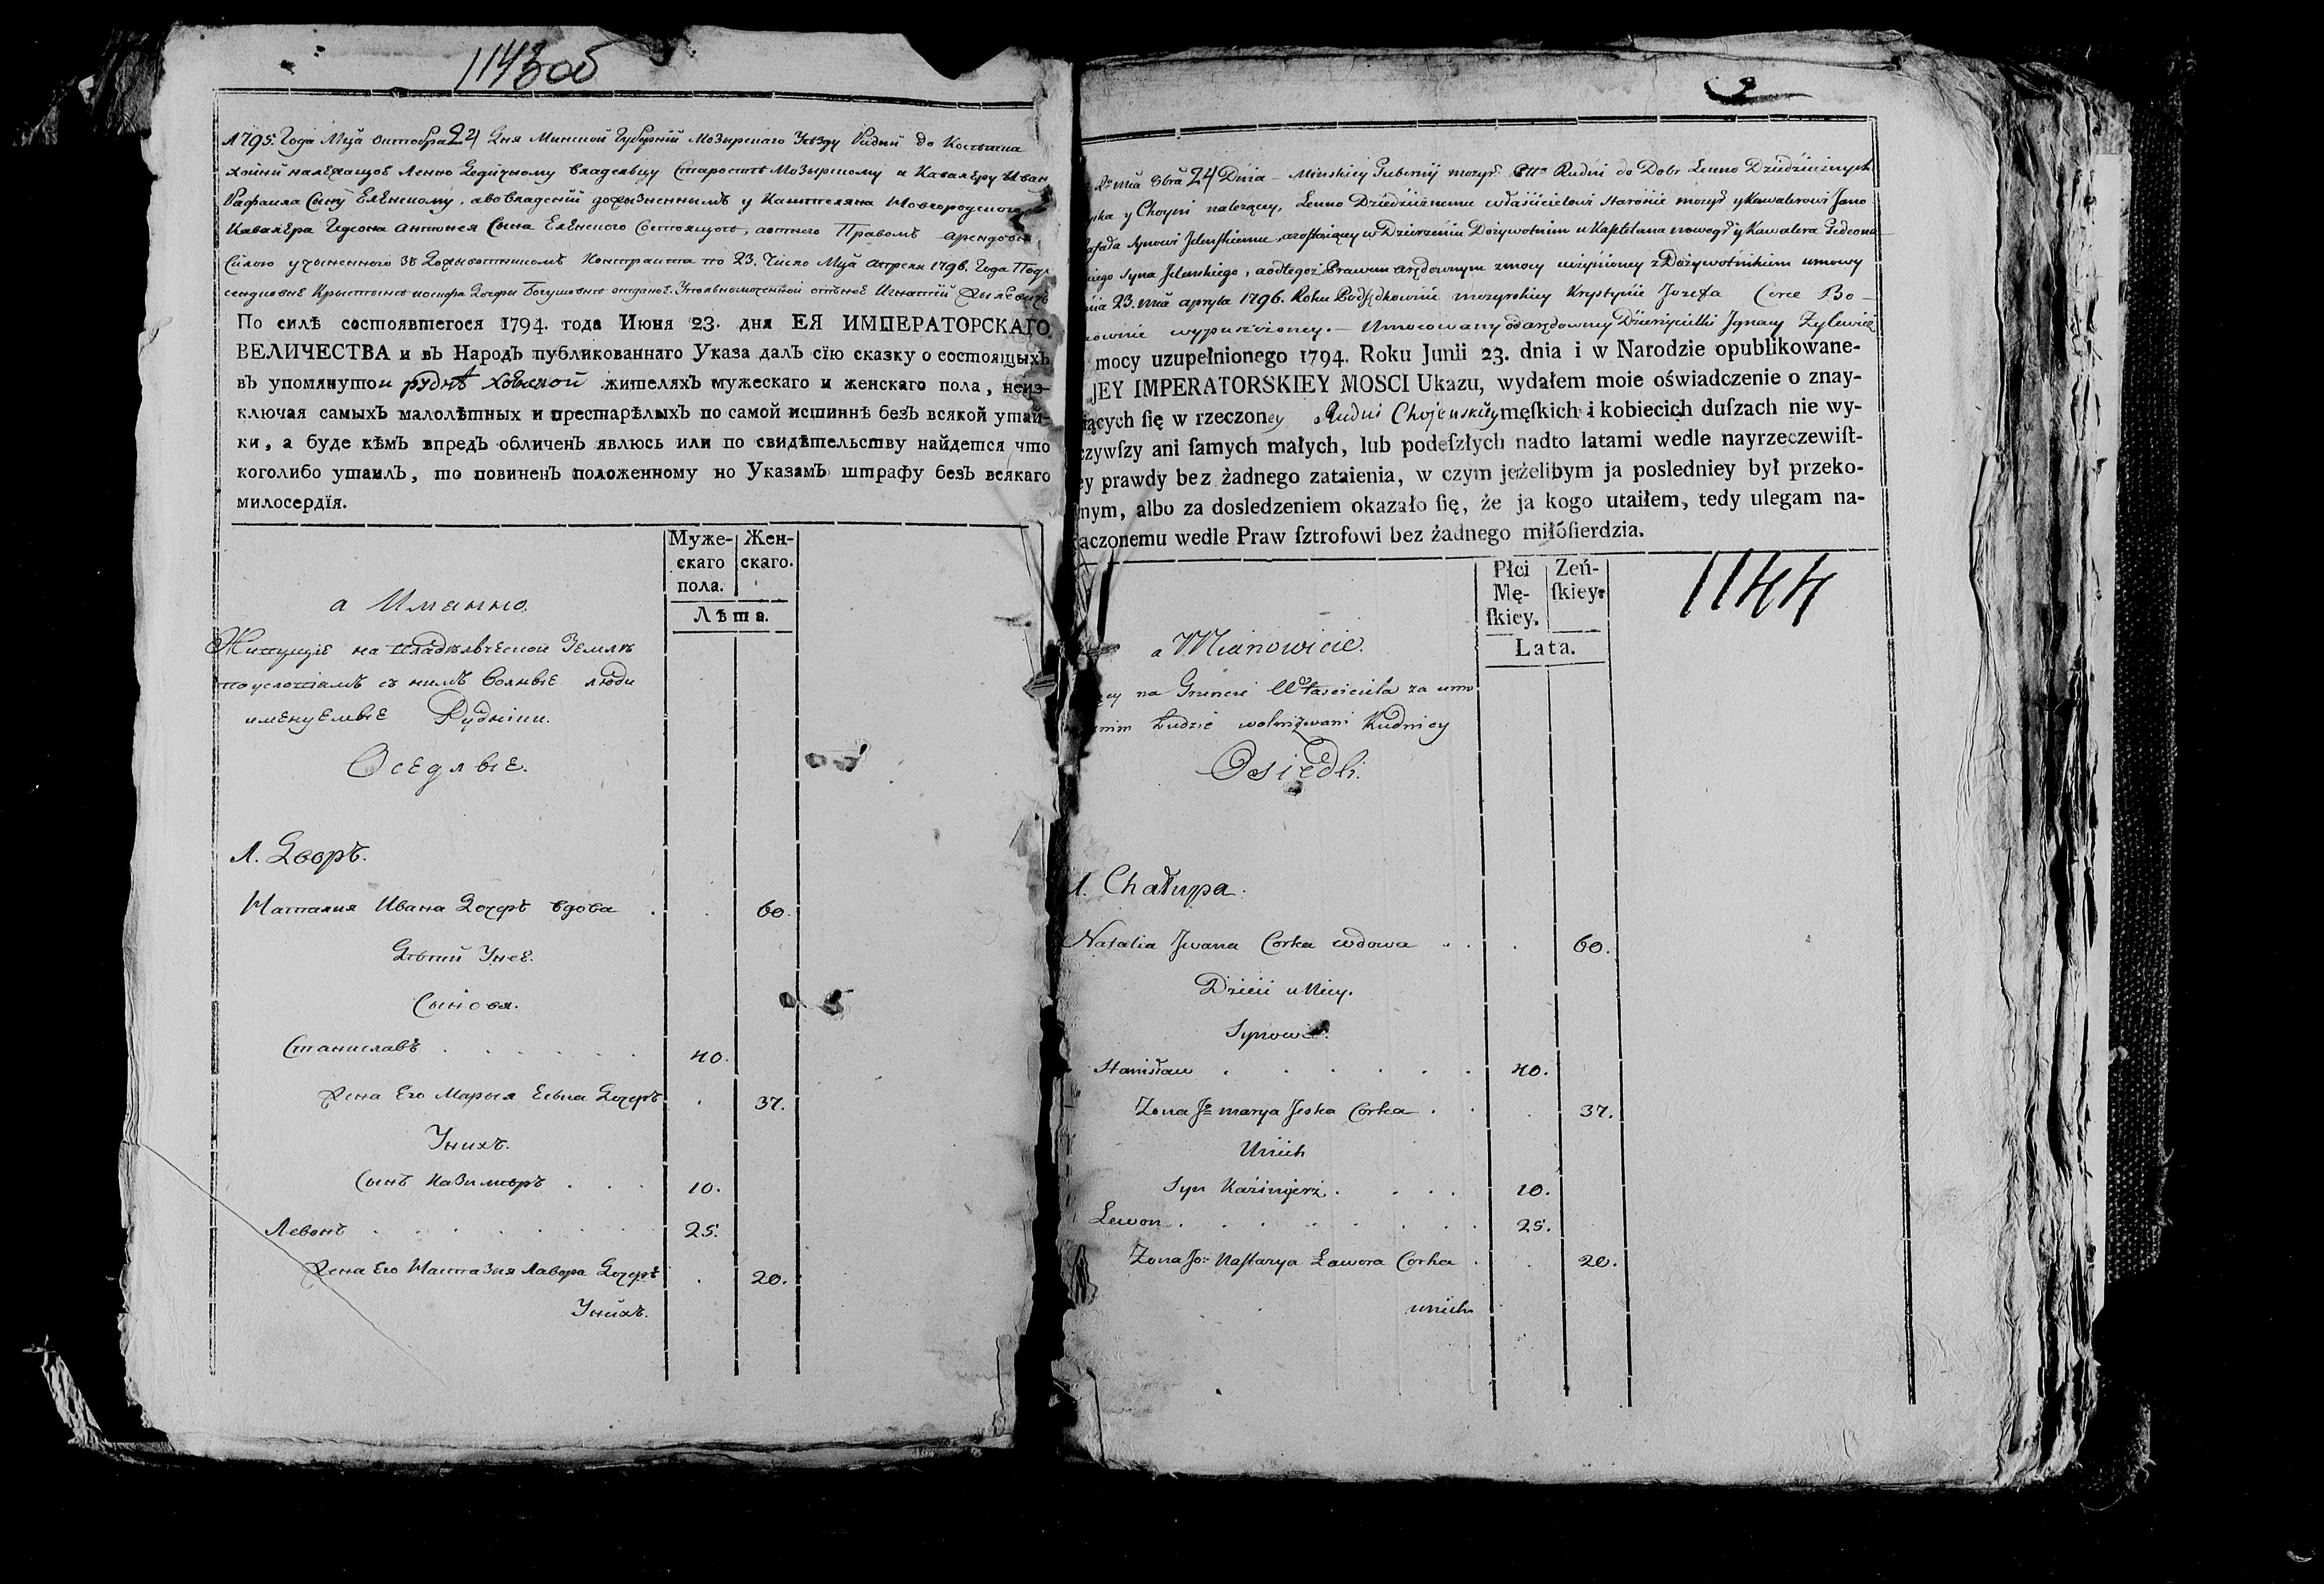 1143об
1795. Года Мца Октобра 24 Дня Минской Губерній Мозырского Уезду Рудни до
Хойни належащое Ленно Дедичному Владельцу Старосте Мозырскому и Кавалеру Иван
Рафаила Сыну Еленскому, а во Владеній дожизненнымъ у Каштеляна Новгородского
Кавалера Гедеона Антонея Сына Еленского Состоящого, Правомъ арендовн
Силою учыненного Зъ Дожывотникомъ Контракта по 23. Число Мца Апреля 1796. Года Под
Крыстыне Иосифа Дочеры Богушовне отданое. Уполномоченной Игнатій Жылевичъ
По силѣ состоявшегося 1794. года Июня 23. дня ЕЯ ИМПЕРАТОРСКАГО
ВЕЛИЧЕСТВА и въ Народъ публикованнаго Указа далъ сїю сказку о состоящыхъ
въ упомянутои руднѣ Хоенской жителяхъ мужескаго и женскаго пола, неиз-
ключая самыхъ малолѣтныхъ и престарѣлыхъ по самой истиннѣ безъ всякой утай-
ки, а буде кѣмъ впредъ обличенъ явлюсь или по свидѣтельству найдется что
коголибо утаилъ, то повиненъ положенному по Указамъ штрафу безъ всякаго
милосердїя.
Муже-
скаго
пола.
Жен-
скаго.
Лѣта.
а Именно.
Жипущіе на Владѣльческой Земли
по условіамъ съ нимъ Волные люди
именуемые Рудники.
Оседлые.
1. Дворъ.
Наталия Ивана Дочеръ вдова . . 60.
Дѣти Унее.
Сынове.
Станиславъ . . . . . . 40.
Жена Его Марыя Еська Дочеръ . 37.
Унихъ.
Сынъ Казимеръ . . . 10.
Левонъ . . . . . . . 25.
Жена Его Настазия Лавора Дочеръ . 20.
Унихъ.
2
Mca 8bra 24 Dnia - Minskiey Gubernij mozyr: Pttu Rudni do Dobr Lenno Dziedzicznych
y Choyni należącey, Lenno Dziedzicznemu właścicielowi Staroście mozyr: y Kawalerowi Jano
Synowi Jelenskiemu, a zostaiącey w Dzierżeniu Dożywotnim u Kasztelana nowogr: y Kawalera Gedeona
Syna Jelenskiego, a odtegoż Prawem arędownym zmocy uczynioney z Dożywotnikiem umowy
nia 23. mca apryla 1796. Roku Podsędkownie mozyrskiey Krystynie Jozefa Corce Bo-
wnie wypuszczoney. - Umocowany od arędowney Dzierżycielki Jgnacy Żylewicz
mocy uzupełnionego 1794. Roku Junii 23. dnia i w Narodzie opublikowane-
JEY IMPERATORSKIEY MOSCI Ukazu, wydałem moie oświadczenie o znay-
iących ſię w rzeczoney Rudni Chojenskiey męſkich i kobiecich duſzach nie wy-
czywſzy ani ſamych małych, lub podeſzłych nadto latami wedle nayrzeczewiſt-
ey prawdy bez żadnego zataienia, w czym jeżelibym ja posledniey był przeko-
nym, albo za dosledzeniem okazało ſię, że ja kogo utaiłem, tedy ulegam na-
aczonemu wedle Praw ſztrofowi bez żadnego miłóſierdzia.
Płci
Mę-
ſkiey.
Żeń-
ſkiey.
Lata.
1144
a Mianowicie.
na Gruncie Właściciela za umo
nim Ludzie wolni zwani Rudnicy
Osiedli.
1. Chałupa.
Natalia Jwana Corka wdowa . . . 60.
Dzieci u Niey.
Synowie.
Stanisław . . . . . . 40.
Zona Jo marya Jeska Corka . . . 37.
Unich
Syn Kazimierz . . . . 10.
Lewon . . . . . . . . 25.
Zona Jo: Nastazya Ławora Corka . . 20.
unich